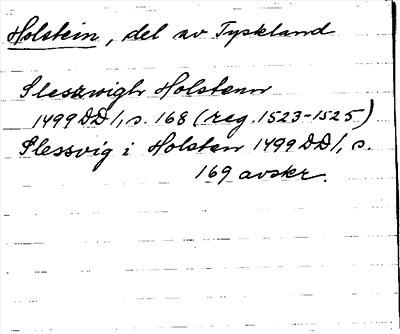 Holstein, del av Tyskland
Sleszwigh Holstenn
1499 DD1, s. 168 (reg. 1523-1525)
Slessvig i Holsten 1499 DD1, s.
169 avskr.